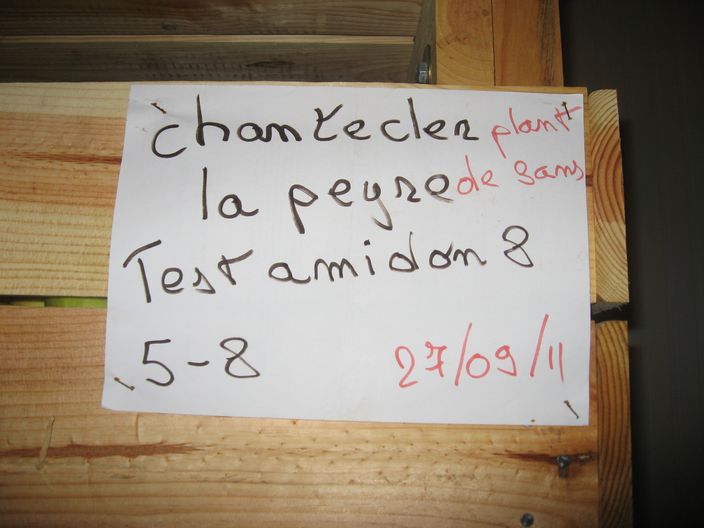 chantecler plant
la peyre de 8ans
Test amidon 8
5-8 27/09/11